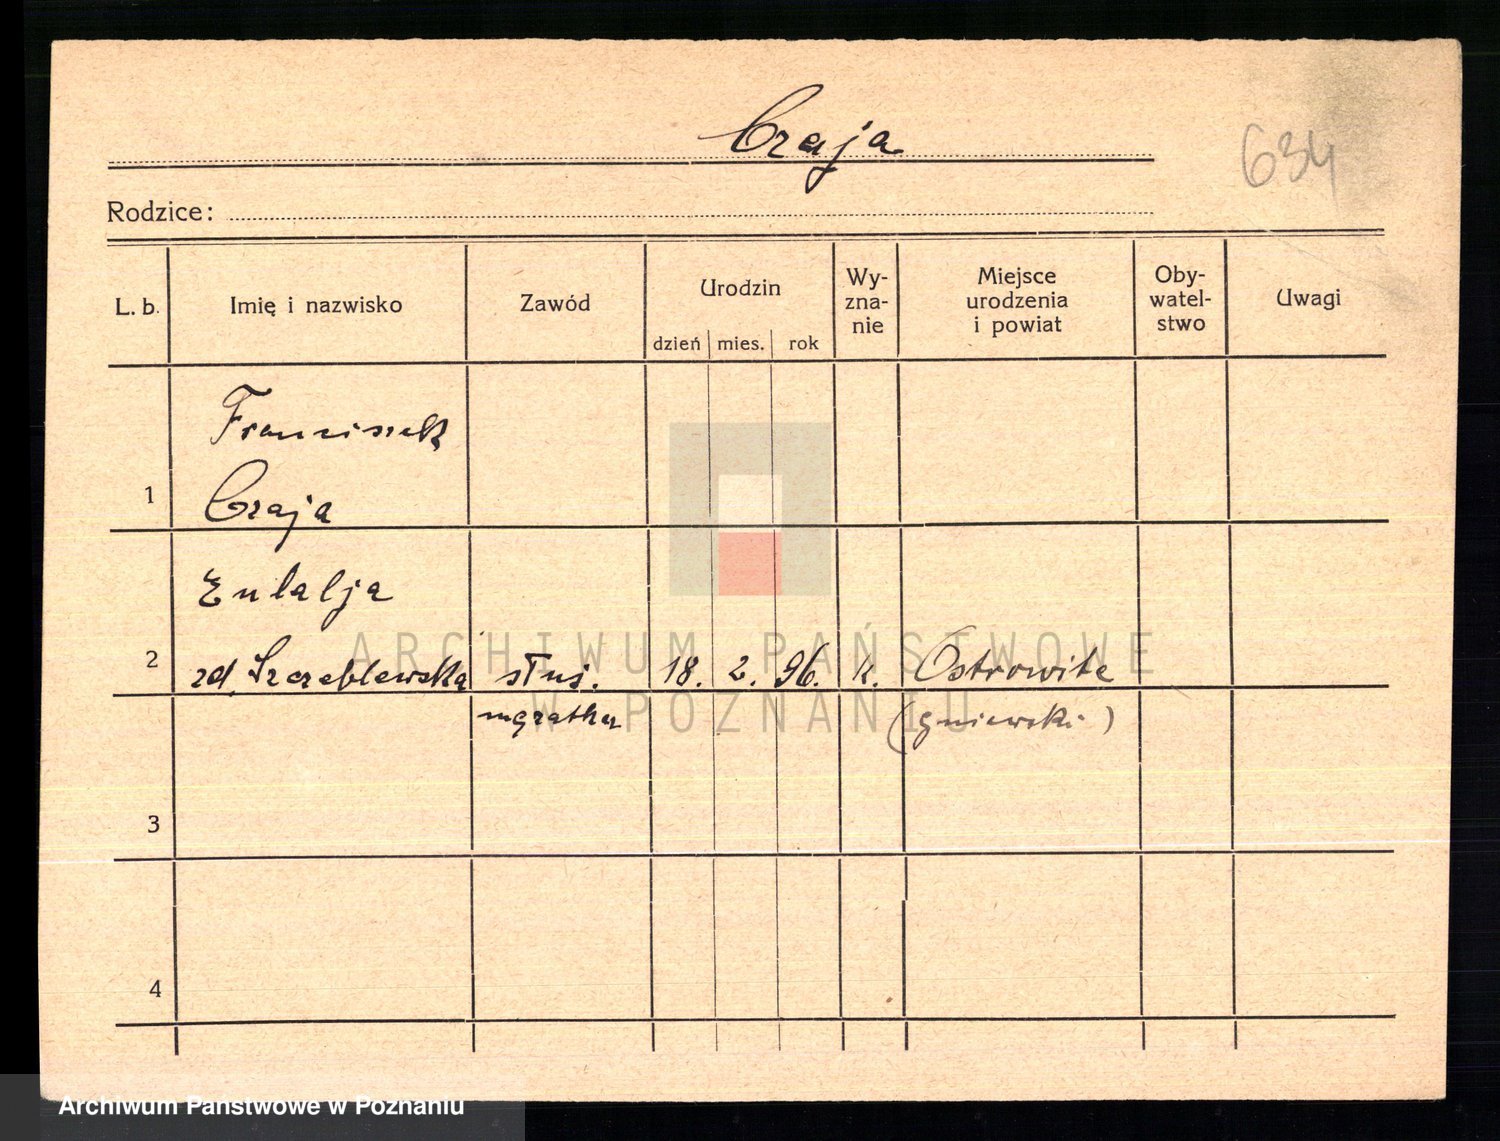 Czaja
634
Rodzice:
L. b. Imię i nazwisko Zawód Urodzin dzień mies. rok Wy-zna-nie Miejsce urodzenia i powiat Oby-watel-stwo Uwagi
Franciszek
1 Czaja
Eulalja
2 zd. Szczeblewska służ. 18. 2. 96. k. Ostrowite
(gniewski)
3
4
ARCHIWUM PAŃSTWOWE
W POZNANIU
Archiwum Państwowe w Poznaniu